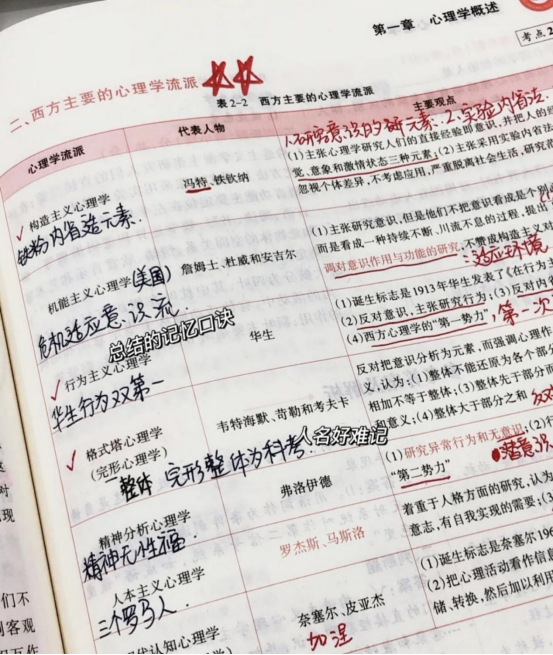 第一章 心理学概述
考点2
二、西方主要的心理学流派
表2-2 西方主要的心理学流派
心理学流派
代表人物
主要观点
构造主义心理学
铁粉内省造元素.
冯特、铁钦纳
(1)主张心理学研究人们的直接经验即意识,并把人的经
觉、意象和激情状态三种元素;(2)主张采用实验内省法
忽视个体差异,不考虑应用,严重脱离社会生活,研究范
机能主义心理学(美国)
危机适应意识流
詹姆士、杜威和安吉尔
(1)主张研究意识,但是他们不把意识看成是个别
而是看成一种持续不断、川流不息的过程,提出
调对意识作用与功能的研究,不赞成构造主义对
适应环境
总结的记忆口诀
行为主义心理学
华生行为双第一
华生
(1)诞生标志是1913年华生发表了《在行为主
(2)反对意识,主张研究行为;(3)反对内
(4)西方心理学的“第一势力”,第一次
格式塔心理学
(完形心理学)
整体 完形整体为科考.
韦特海默、苛勒和考夫卡
人名好难记
反对把意识分析为元素,而强调心理作
义,认为:(1)整体不能还原为各个部分
相加不等于整体;(3)整体先于部分而
和意义;(4)整体大于部分之和
精神分析心理学
精神无性福.
弗洛伊德
(1)研究异常行为和无意识;(2)
“第二势力”
潜意识
人本主义心理学
三个罗马人.
罗杰斯、马斯洛
着重于人格方面的研究,认为
意志,有自我实现的需要;(3
现代认知心理学
奈塞尔、皮亚杰
加涅
(1)诞生标志是奈塞尔196
(2)把心理活动看作信息
储、转换,然后加以利用